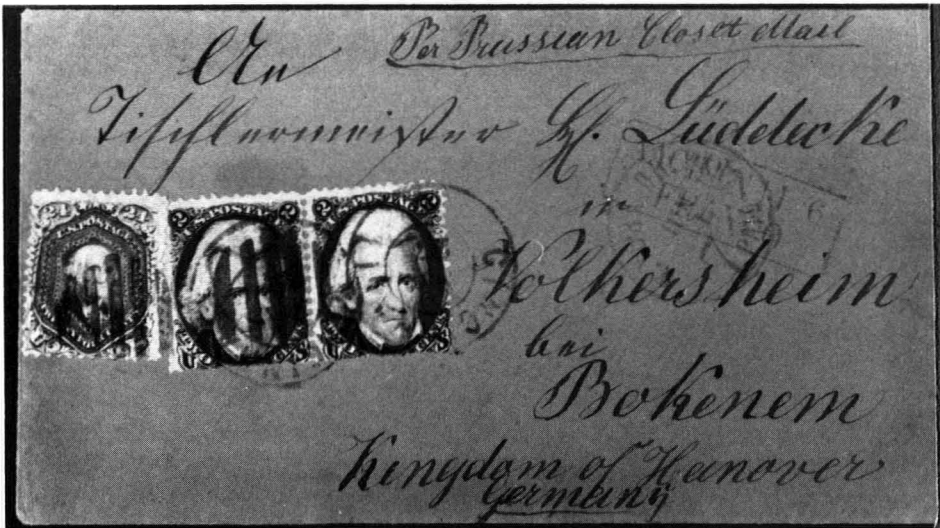 Per Prussian Closet Mail
An
Tischlermeister H. Lüddecke
in
Volkersheim
bei
Bokenem
Kingdom of Hanover
Germany
24 24
U.S. POSTAGE
2 U.S. POSTAGE 2
2 U.S. POSTAGE 2
AACHEN
FRANCO
CINC